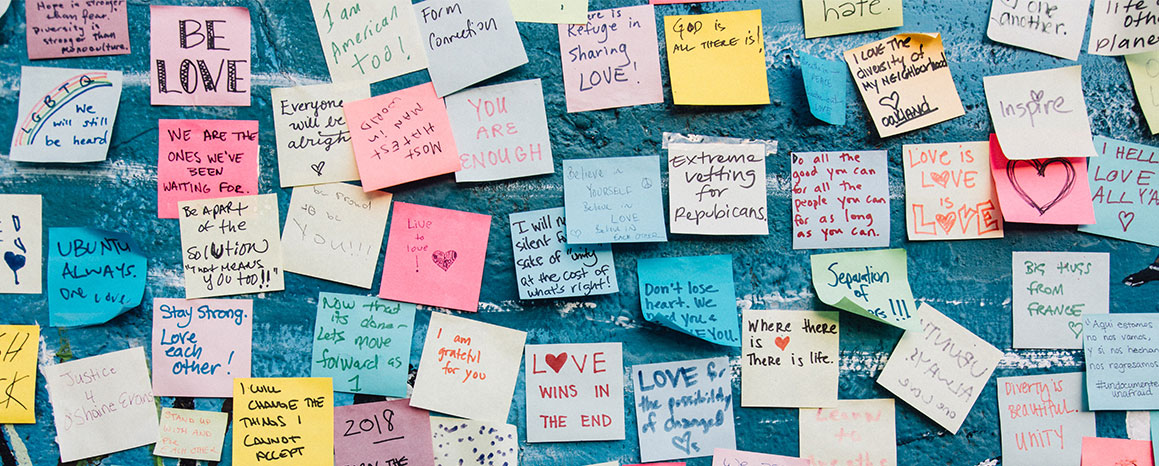 Hope is
stronger than
fear. Diversity is
stronger than
monoculture.
BE
LOVE
I am
American
too!
Form
Connection
There is
Refuge in
Sharing
LOVE!
GOD is
ALL THERE IS!
hate.
one
another.
life
other
planet
LGBTQ
We
will still
be heard
Everyone
will be
alright
MOST
HATED
MAN IN
YOU
ARE
ENOUGH
I LOVE THE
diversity of
MY NEIGHBORHOOD
OAKLAND
Inspire
WE ARE THE
ONES WE'VE
BEEN
WAITING FOR.
Extreme
vetting for
Repubicans.
Do all the
good you can
for all the
people you can
for as long
as you can.
Love is
LOVE
is
LOVE
I HELL
LOVE
ALL Y'A
Believe in
YOURSELF
Believe in
LOVE
Believe in
EACH OTHER
BE APART
of the
SOLUTION
"THAT MEANS
YOU TOO!!"
proud
to be
YOU!!!
Live
to
love!
I will no
silent f
sake of "unity
at the cost of
what's right!
UBUNTU
ALWAYS.
One Love.
Don't lose
heart. We
need you &
LOVE YOU
Separation
of
!!!
BIG HUGS
FROM
FRANCE
Stay Strong.
Love
each
other!
Now that
its done-
Lets move
forward as
1
I am
grateful
for you
Where there
is
There is life.
UBUNTU
ALWAYS
one love
Aqui estamos
no nos vamos,
y si nos hechan
nos regresamos
#undocumente
unafraid
LOVE
WINS IN
THE END
LOVE for
the possibility
of changed
Justice
4
DShaine Evans
STAND UP
WITH AND
FOR EACH
OTHER
I WILL
CHANGE THE
THINGS I
CANNOT
ACCEPT
2018
Learn
to
Diverty is
beautiful.
UNITY